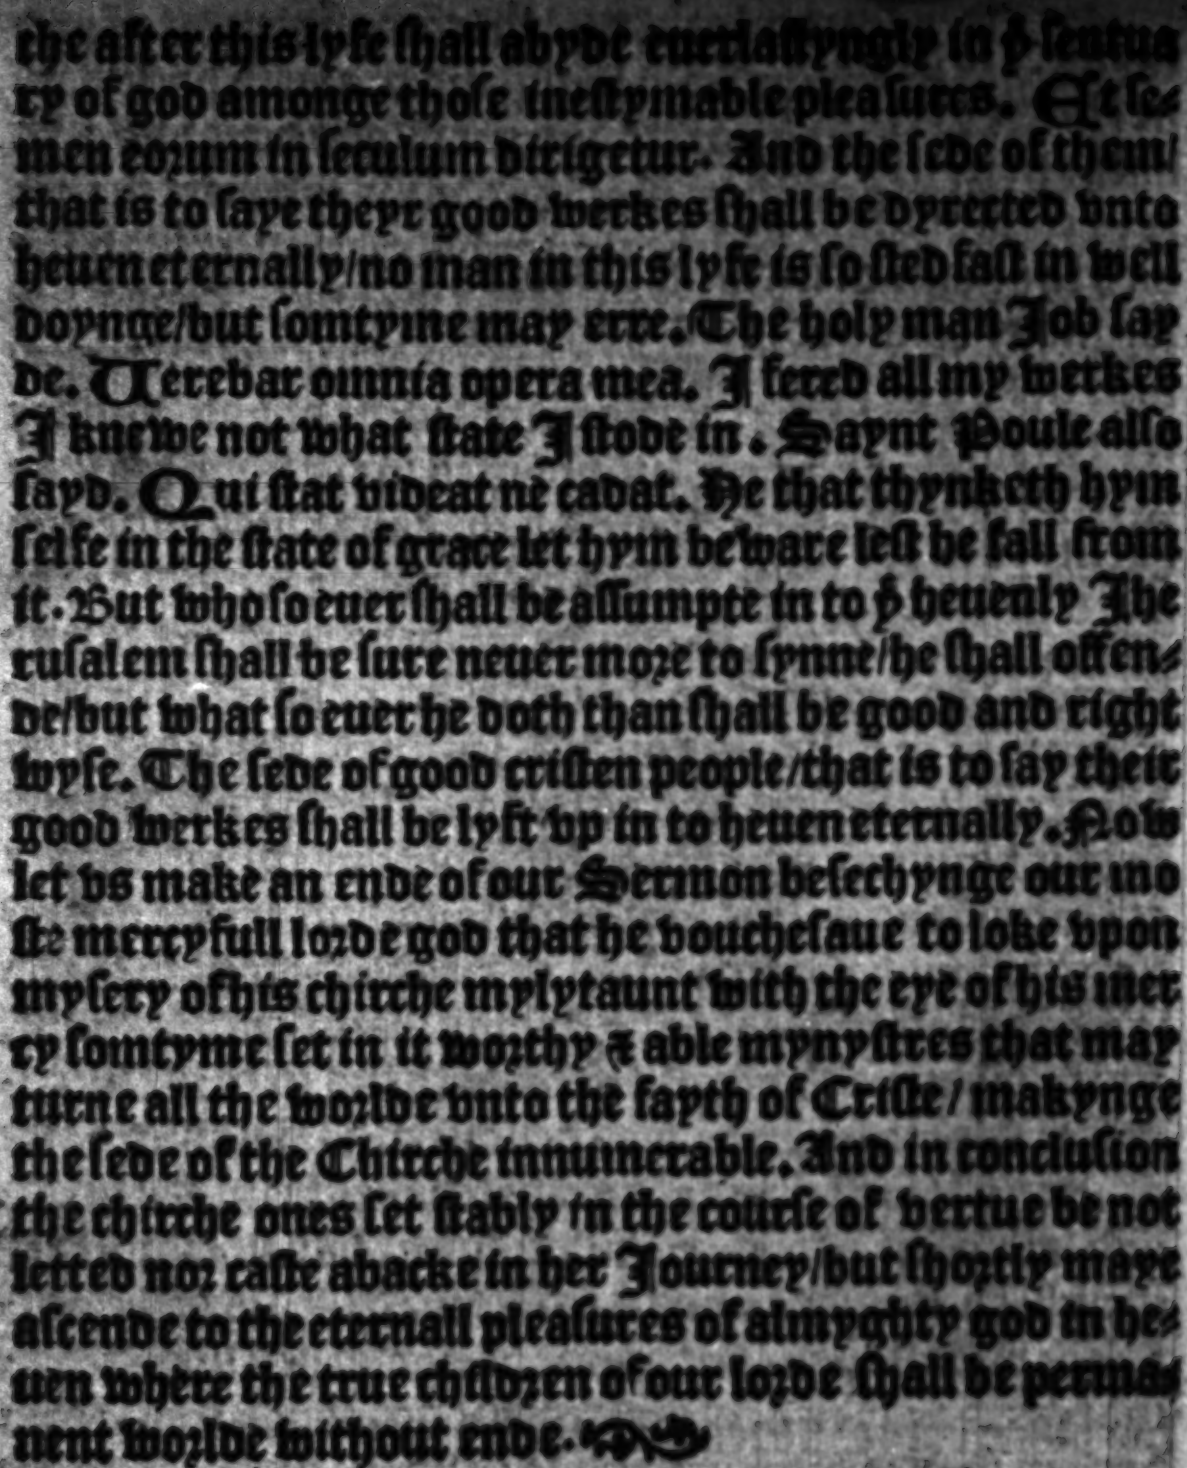 the after this lyfe ſhall abyde euerlaſtyngly in þͤ ſentua
ry of god amonge thoſe ineſtymable pleaſures. Et ſe⸗
men eoꝛum in ſeculum dirigetur. And the ſede of them/
that is to ſaye theyr good werkes ſhall be dyrected vnto
heuen eternally/no man in this lyfe is ſo ſtedfaſt in well
doynge/but ſomtyme may erre. The holy man Job ſay
de. Uerebar omnia opera mea. I fered all my werkes
I knewe not what ſtate I ſtode in. Saynt Poule alſo
ſayd. Qui ſtat videat ne cadat. He that thynketh hym
ſelfe in the ſtate of grace let hym beware leſt he fall from
it. But who ſo euer ſhall be aſſumpte in to þͤ heuenly Jhe
ruſalem ſhall be ſure neuer moꝛe to ſynne/he ſhall offen⸗
de/but what ſo euer he doth than ſhall be good and right
wyſe. The ſede of good criſten people/that is to ſay their
good werkes ſhall be lyft vp in to heuen eternally. Now
let vs make an ende of our Sermon beſechynge our mo
ſte mercyfull loꝛde god that he voucheſaue to loke vpon
myſery of his chirche mylytaunt with the eye of his mer
cy ſomtyme ſet in it woꝛthy ⁊ able mynyſtres that may
turne all the woꝛlde vnto the fayth of Criſte/ makynge
the ſede of the Chirche innumerable. And in concluſion
the chirche ones ſet ſtably in the courſe of vertue be not
letted noꝛ caſte abacke in her Journey/but ſhoꝛtly maye
aſcende to the eternall pleaſures of almyghty god in he⸗
uen where the true childꝛen of our loꝛde ſhall be perma⸗
nent woꝛlde without ende.